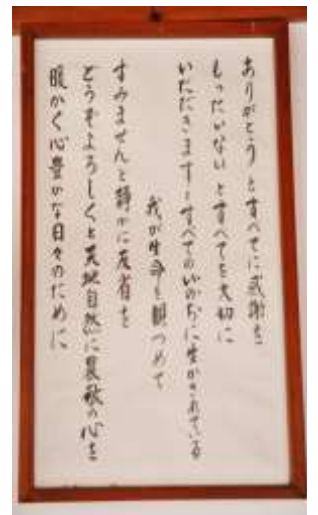 ありがとう とすべてに感謝を
もったいない とすべてを大切に
いただきます とすべてのいのちに生かされている
我が生命を観つめて
すみませんと静かに反省を
どうぞよろしくと天地自然に畏敬の心を
暖かく心豊かな日々のために